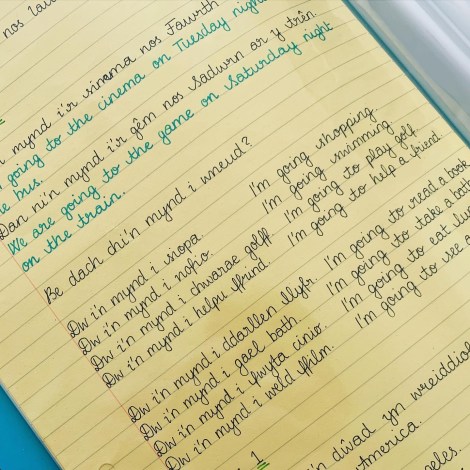 nos
mynd i'r sinema nos Fawrth
going to the cinema on Tuesday night
bus.
Dan ni'n mynd i'r gêm nos Sadwrn ar y trên.
We are going to the game on Saturday night
on the train.
Be dach chi'n mynd i wneud?
Dw i'n mynd i siopa. I'm going shopping.
Dw i'n mynd i nofio. I'm going swimming.
Dw i'n mynd i chwarae golff. I'm going to play golf.
Dw i'n mynd i helpu ffrind. I'm going to help a friend.
Dw i'n mynd i ddarllen llyfr. I'm going to read a book
Dw i'n mynd i gael bath. I'm going to take a
Dw i'n mynd i fwyta cinio. I'm going to eat
Dw i'n mynd i weld ffilm. I'm going to see a
1
i'n dŵad yn wreiddiol
America.